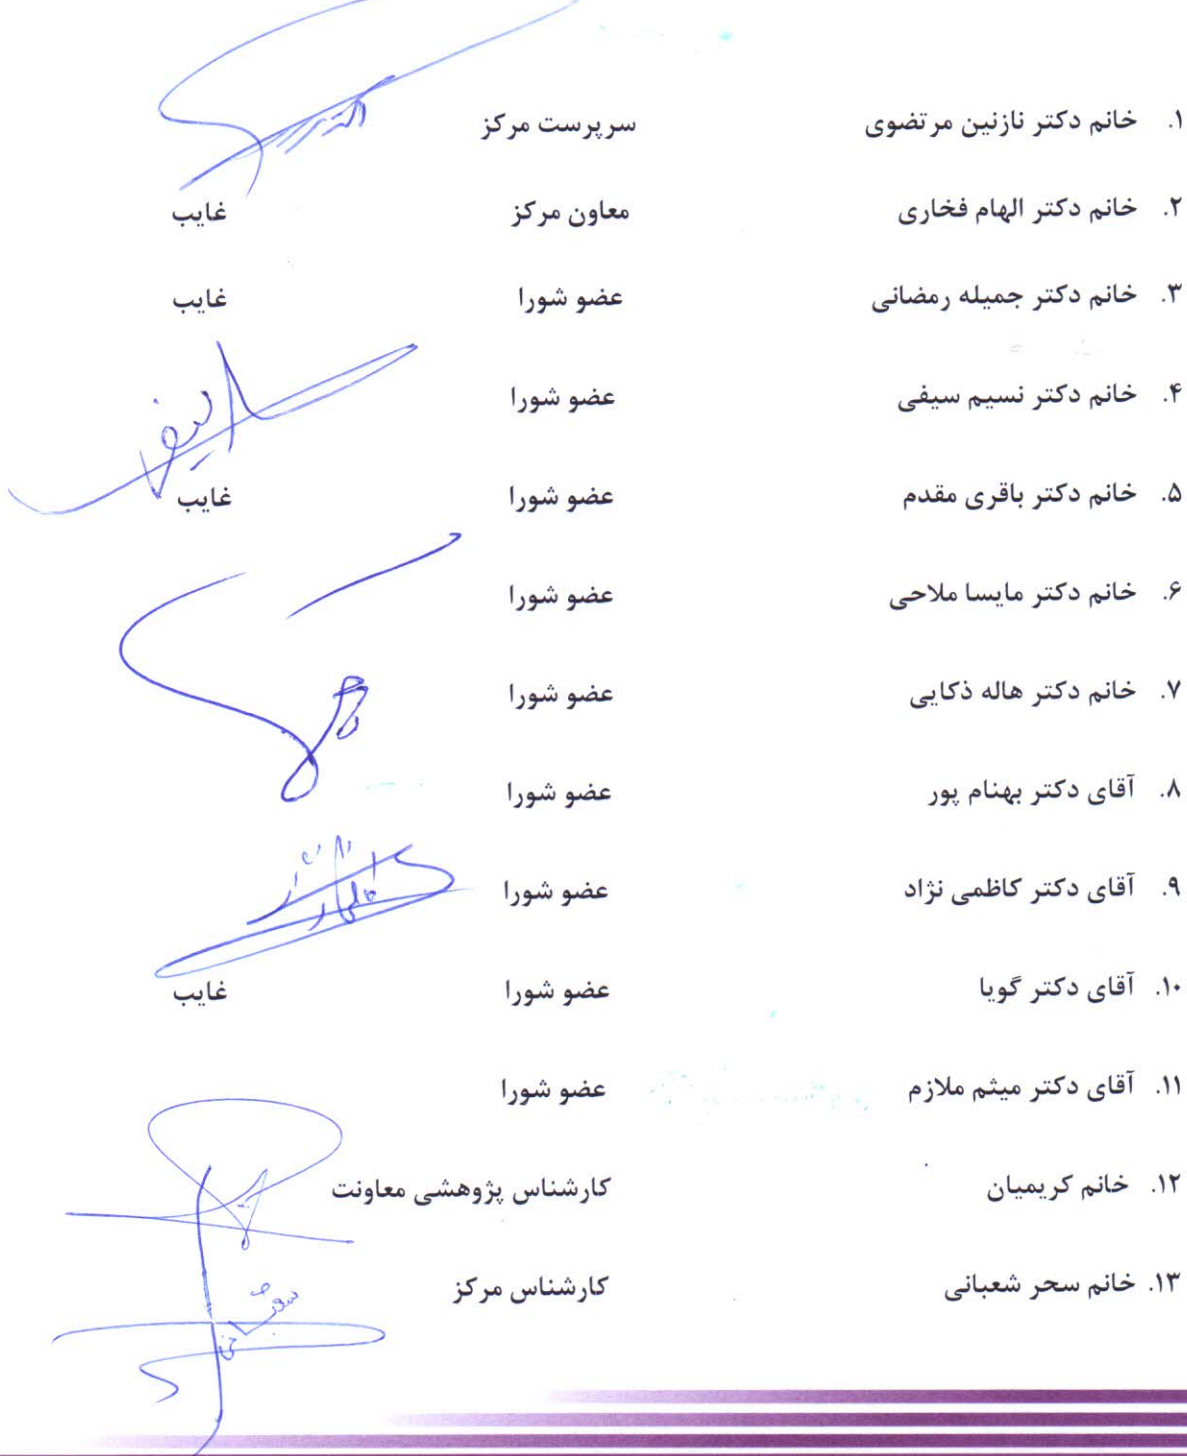 ۱. خانم دکتر نازنین مرتضوی سرپرست مرکز
۲. خانم دکتر الهام فخاری معاون مرکز غایب
۳. خانم دکتر جمیله رمضانی عضو شورا غایب
۴. خانم دکتر نسیم سیفی عضو شورا
۵. خانم دکتر باقری مقدم عضو شورا غایب
۶. خانم دکتر مایسا ملاحی عضو شورا
۷. خانم دکتر هاله ذکایی عضو شورا
۸. آقای دکتر بهنام پور عضو شورا
۹. آقای دکتر کاظمی نژاد عضو شورا
۱۰. آقای دکتر گویا عضو شورا غایب
۱۱. آقای دکتر میثم ملازم عضو شورا
۱۲. خانم کریمیان کارشناس پژوهشی معاونت
۱۳. خانم سحر شعبانی کارشناس مرکز